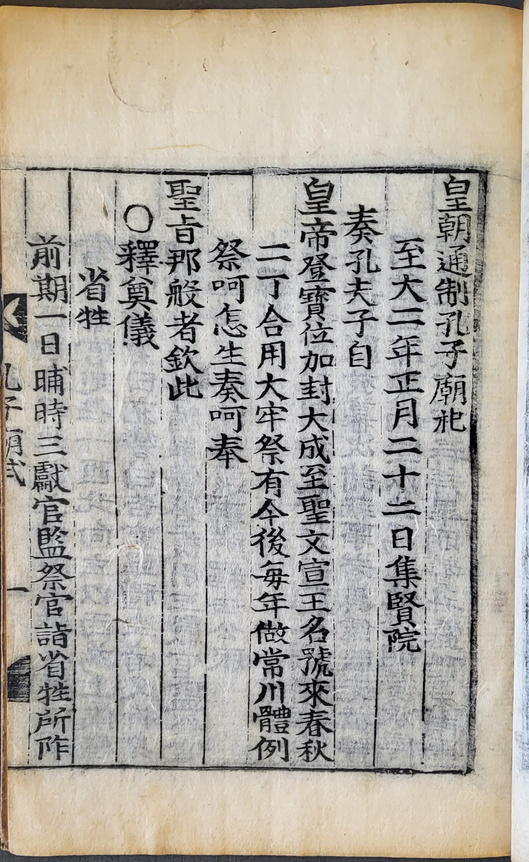 皇朝通制孔子廟祀
至大二年正月二十二日集賢院
奏孔夫子自
皇帝登寶位加封大成至聖文宣王名號來春秋
二丁合用大牢祭有今後每年做常川體例
祭呵怎生奏呵奉
聖旨那般者欽此
○釋奠儀
省牲
前期一日晡時三獻官監祭官詣省牲所阼